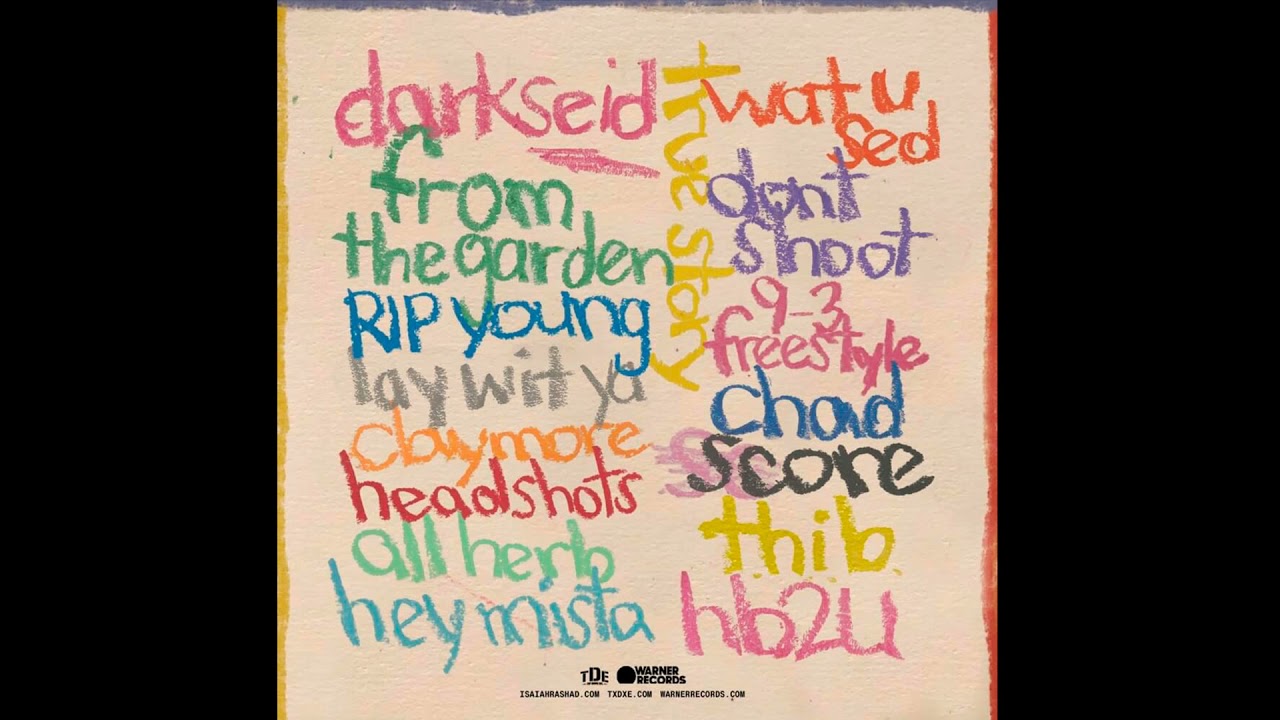 darkseid
from
the garden
RIP young
lay wit ya
claymore
headshots
all herb
hey mista
true story
wat u
sed
dont
shoot
9-3
freestyle
chad
score
thib
hb2u
TDE
WARNER
RECORDS
ISAIAHRASHAD.COM TXDXE.COM WARNERRECORDS.COM